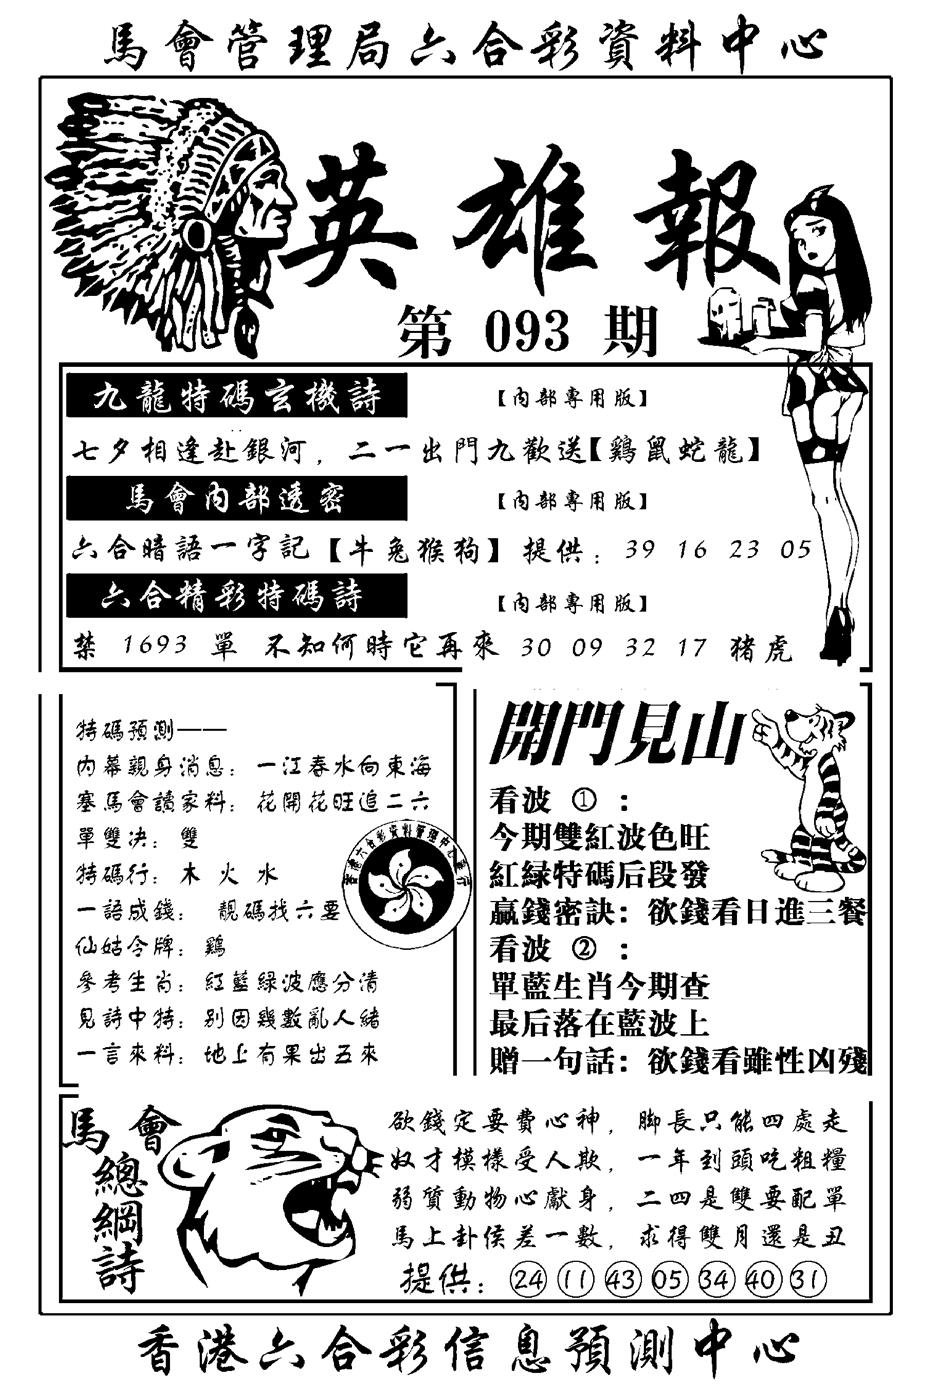 馬會管理局六合彩資料中心
英雄報
第 093 期
九龍特碼玄機詩 【內部專用版】
七夕相逢赴銀河，二一出門九歡送【鷄鼠蛇龍】
馬會內部透密 【內部專用版】
六合暗語一字記【牛兔猴狗】 提供：39 16 23 05
六合精彩特碼詩 【內部專用版】
禁 1693 單 不知何時它再來 30 09 32 17 猪虎
特碼預測——
內幕親身消息：一江春水向東海
塞馬會讀家料：花開花旺追二六
單雙决：雙
特碼行：木 火 水
一語成錢： 靚碼找六要
仙姑令牌：鷄
參考生肖：紅藍綠波應分清
見詩中特：别因幾數亂人緒
一言來料：地上有果出五來
香港六合彩資料管理中心
開門見山
看波 ①：
今期雙紅波色旺
紅緑特碼后段發
贏錢密訣：欲錢看日進三餐
看波 ②：
單藍生肖今期查
最后落在藍波上
贈一句話：欲錢看雖性凶殘
馬會
總綱詩
欲錢定要費心神，脚長只能四處走
奴才模樣受人欺，一年到頭吃粗糧
弱質動物心獻身，二四是雙要配單
馬上卦侯差一數，求得雙月還是丑
提供：24 11 43 05 34 40 31
香港六合彩信息預測中心